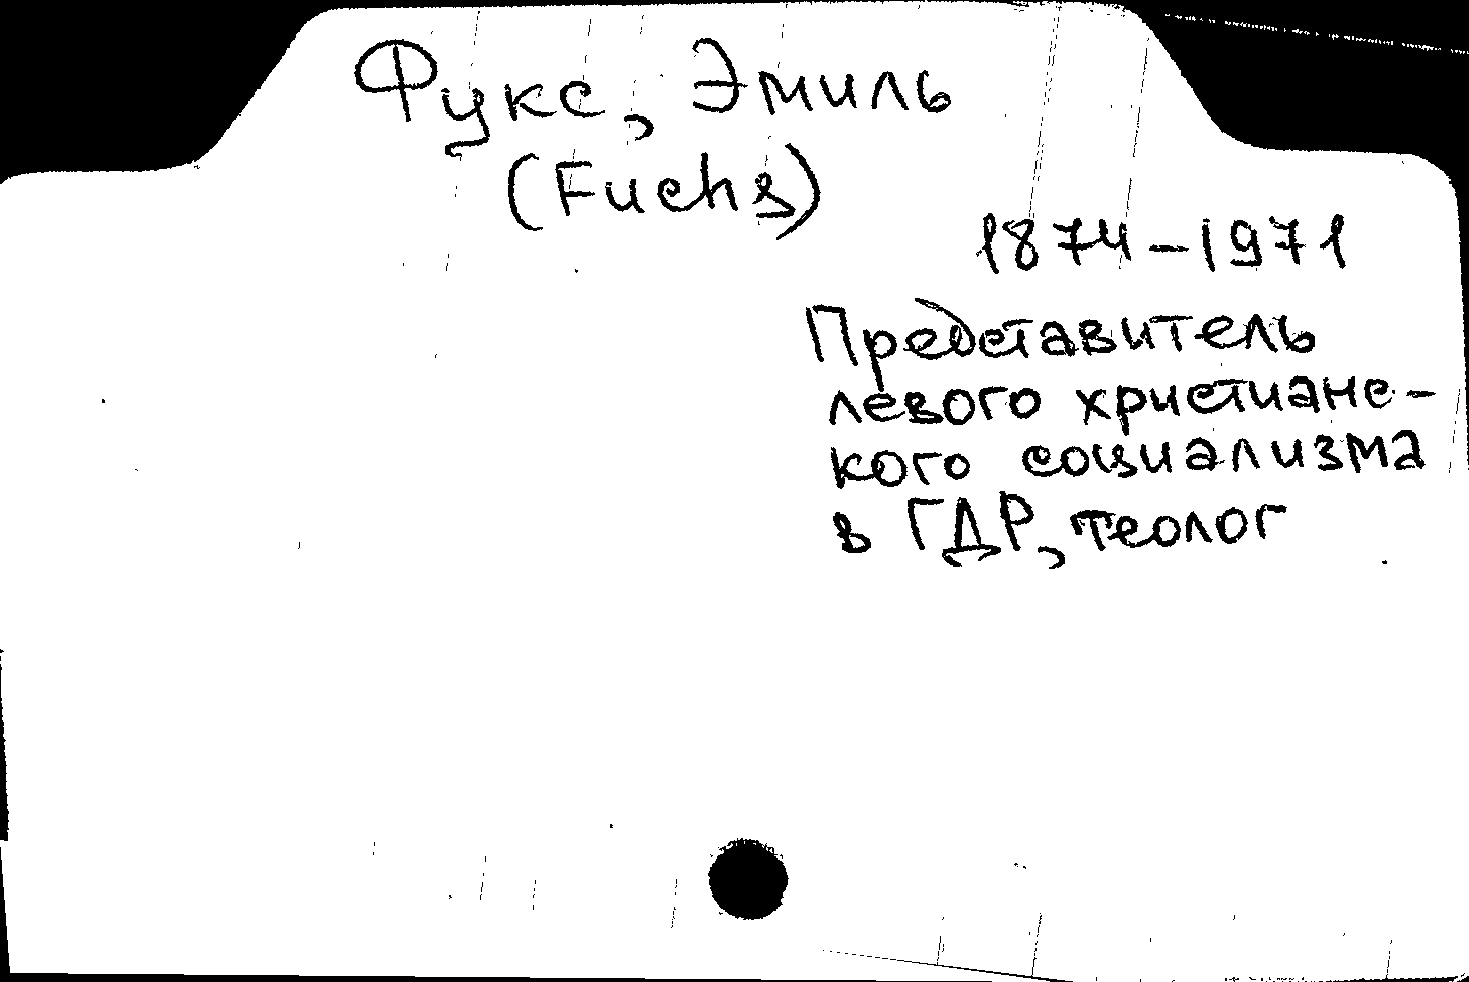 Фукс, Эмиль
(Fuchs)
1874–1971
Представитель
левого христианс-
кого социализма
в ГДР, теолог